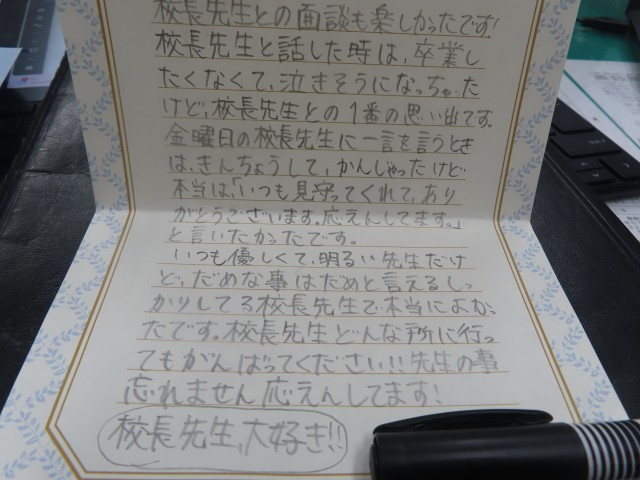 校長先生との面談も楽しかったです!
校長先生と話した時は、卒業し
たくなくて、泣きそうになっちゃった
けど、校長先生との1番の思い出です。
金曜日の校長先生に一言を言うとき
は、きんちょうして、かんじゃったけど
本当は、「いつも見守ってくれて、あり
がとうございます。応えんしてます。」
と言いたかったです。
いつも優しくて、明るい先生だけ
ど、だめな事はだめと言えるしっ
かりしてる校長先生で本当によかっ
たです。校長先生どんな所に行っ
てもがんばってください!!先生の事
忘れません応えんしてます!
校長先生、大好き!!